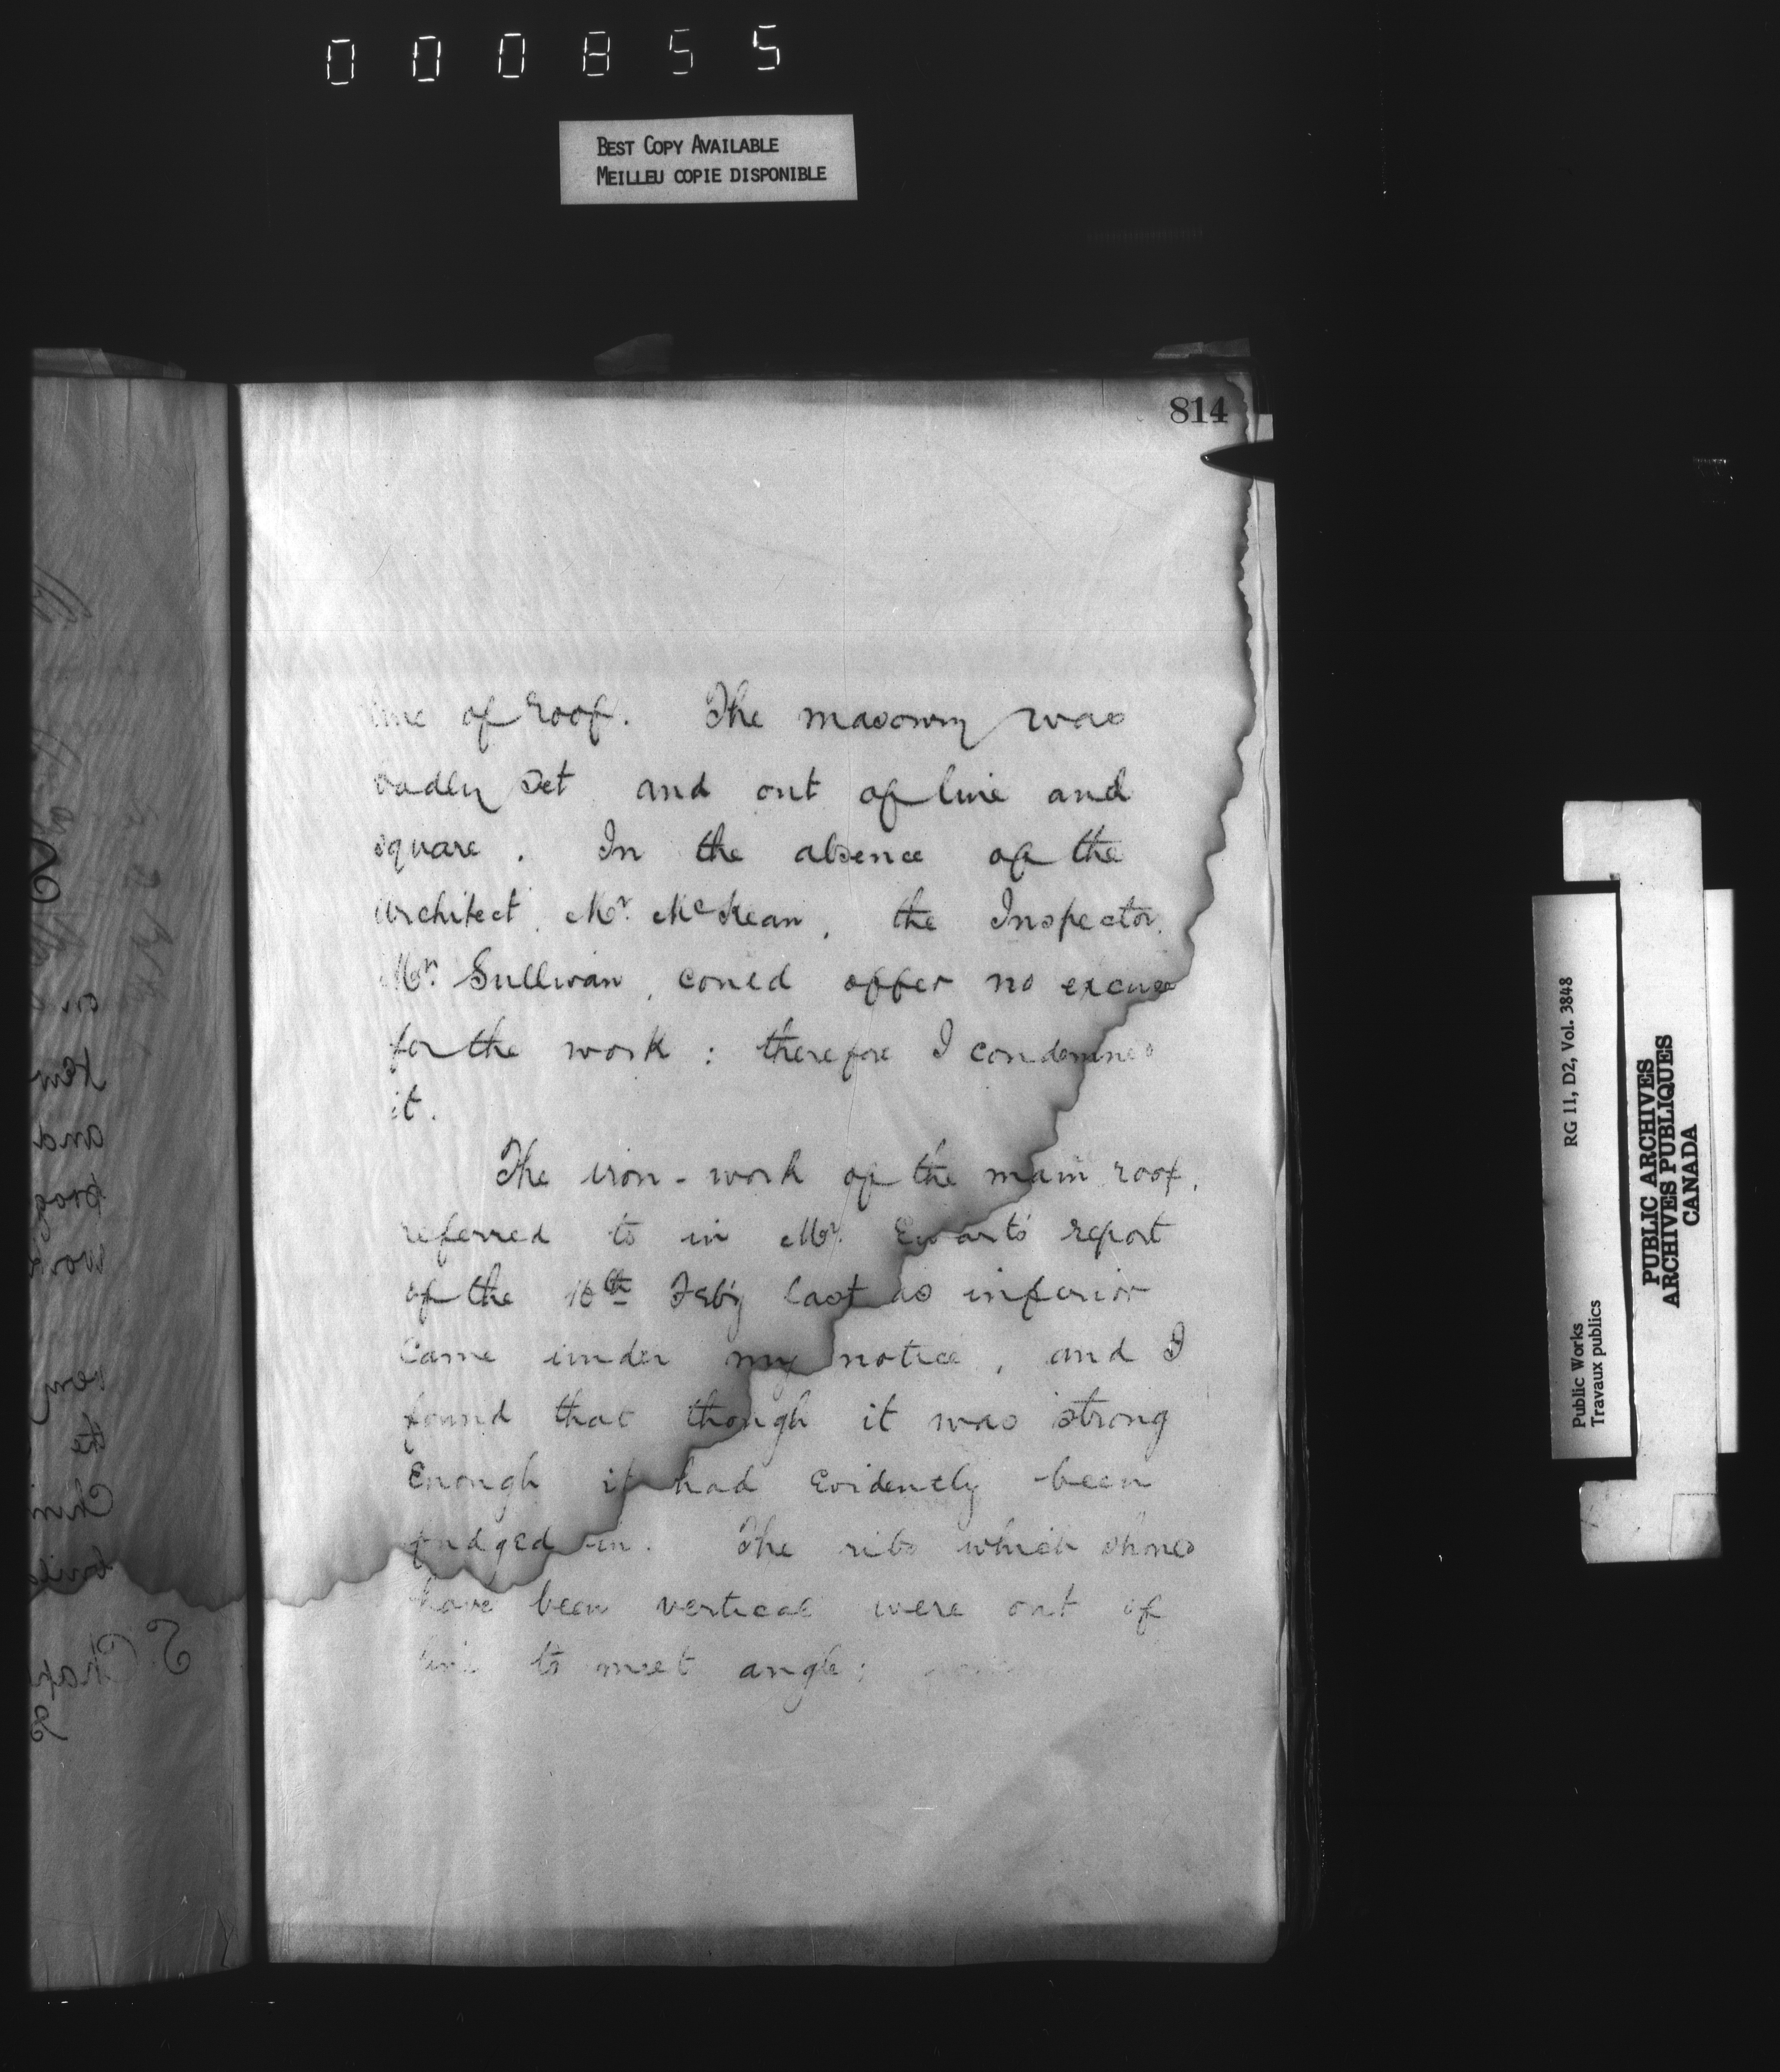 000855
BEST COPY AVAILABLE
MEILLEU COPIE DISPONIBLE
814
line of roof. The masonry was
badly set and out of line and
square. In the absence of the
Architect, Mr. McKean, the Inspector,
Mr. Sullivan, could offer no excuse
for the work: therefore I condemned
it.
The iron-work of the main roof,
referred to in Mr. Ewart's report
of the 10th Feb'y last as inferior
came under my notice, and I
found that though it was strong
enough it had evidently been
fudged in. The ribs which should
have been vertical were out of
line to meet angle;
RG 11, D2, Vol. 3848
Public Works
Travaux publics
PUBLIC ARCHIVES
ARCHIVES PUBLIQUES
CANADA